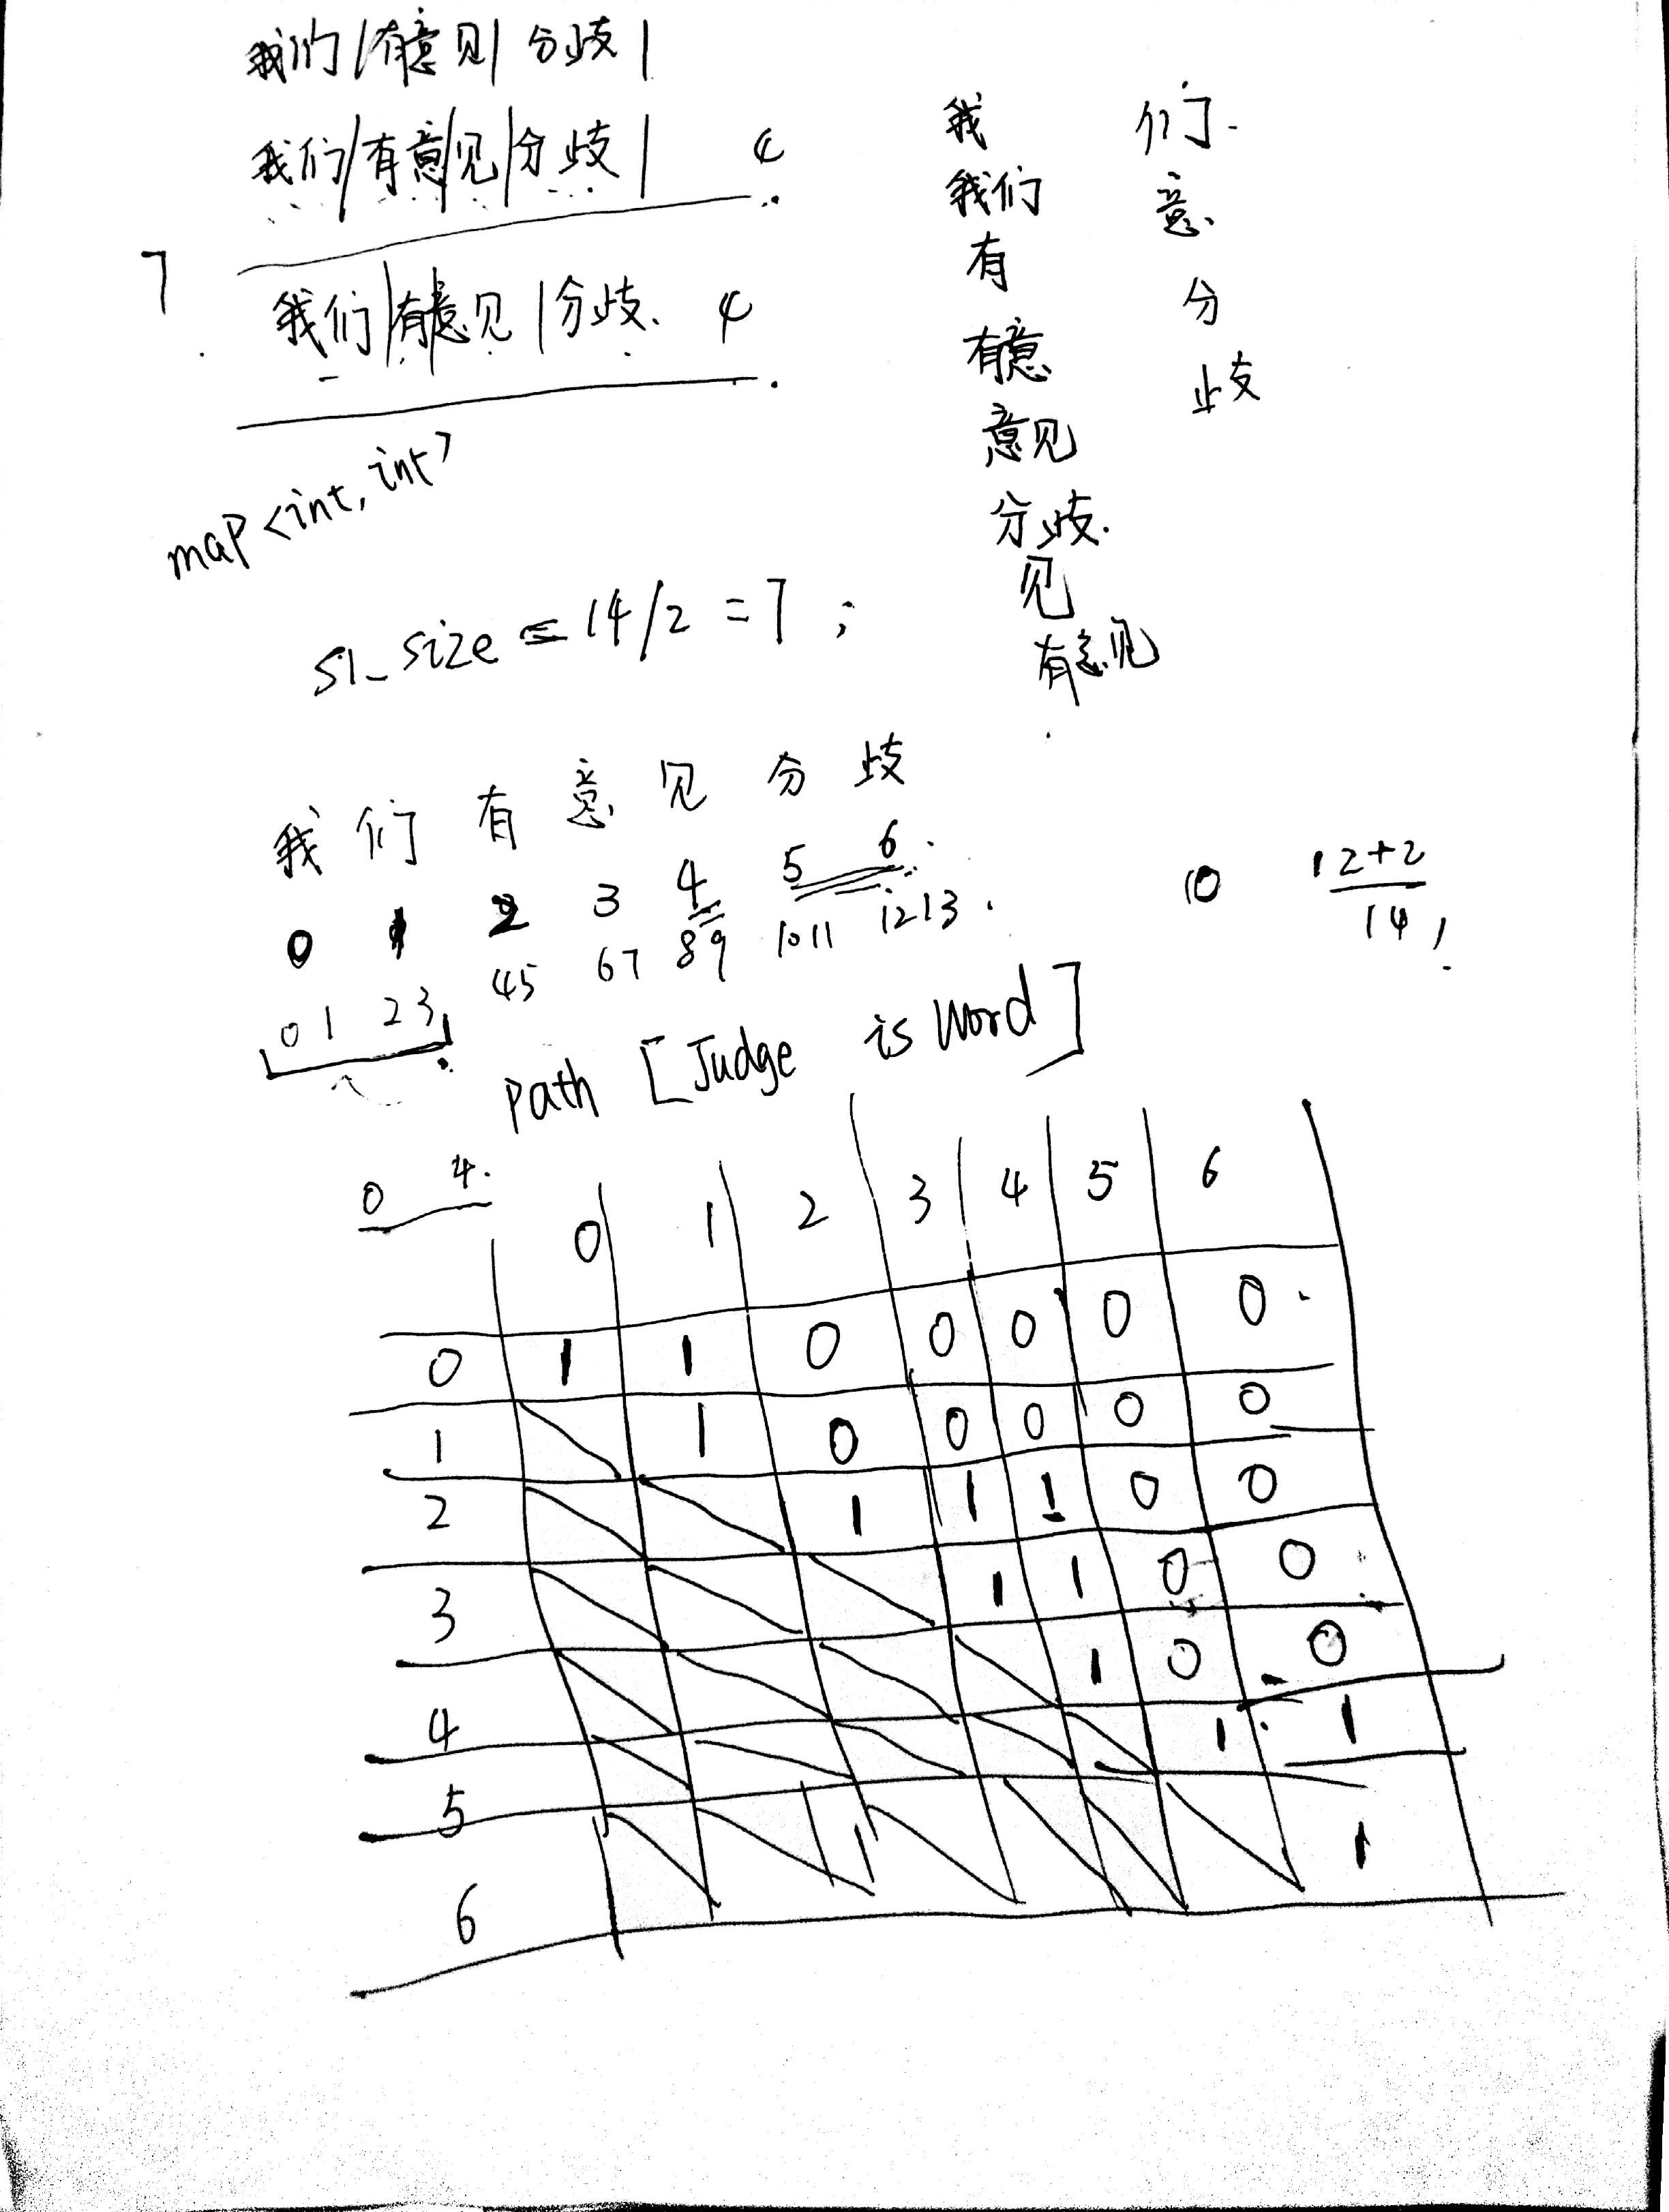 我们|有意见|分歧|
我们|有意|见|分歧| 4
7
我们|有|意见|分歧. 4
map<int, int>
s1_size = 14/2 = 7 ;
我 们.
我们 意.
有 分
有意 歧
意见
分歧.
见
有意见
我 们 有 意 见 分 歧
0 1 2 3 4 5 6.
01 23 45 67 89 1011 1213.
10 12+2
14
path [Judge is word]
0 4.
0 1 2 3 4 5 6
0 1 1 0 0 0 0 0
1 1 0 0 0 0 0
2 1 1 1 0 0
3 1 1 0 0
4 1 0 0
5 1 1
6 1